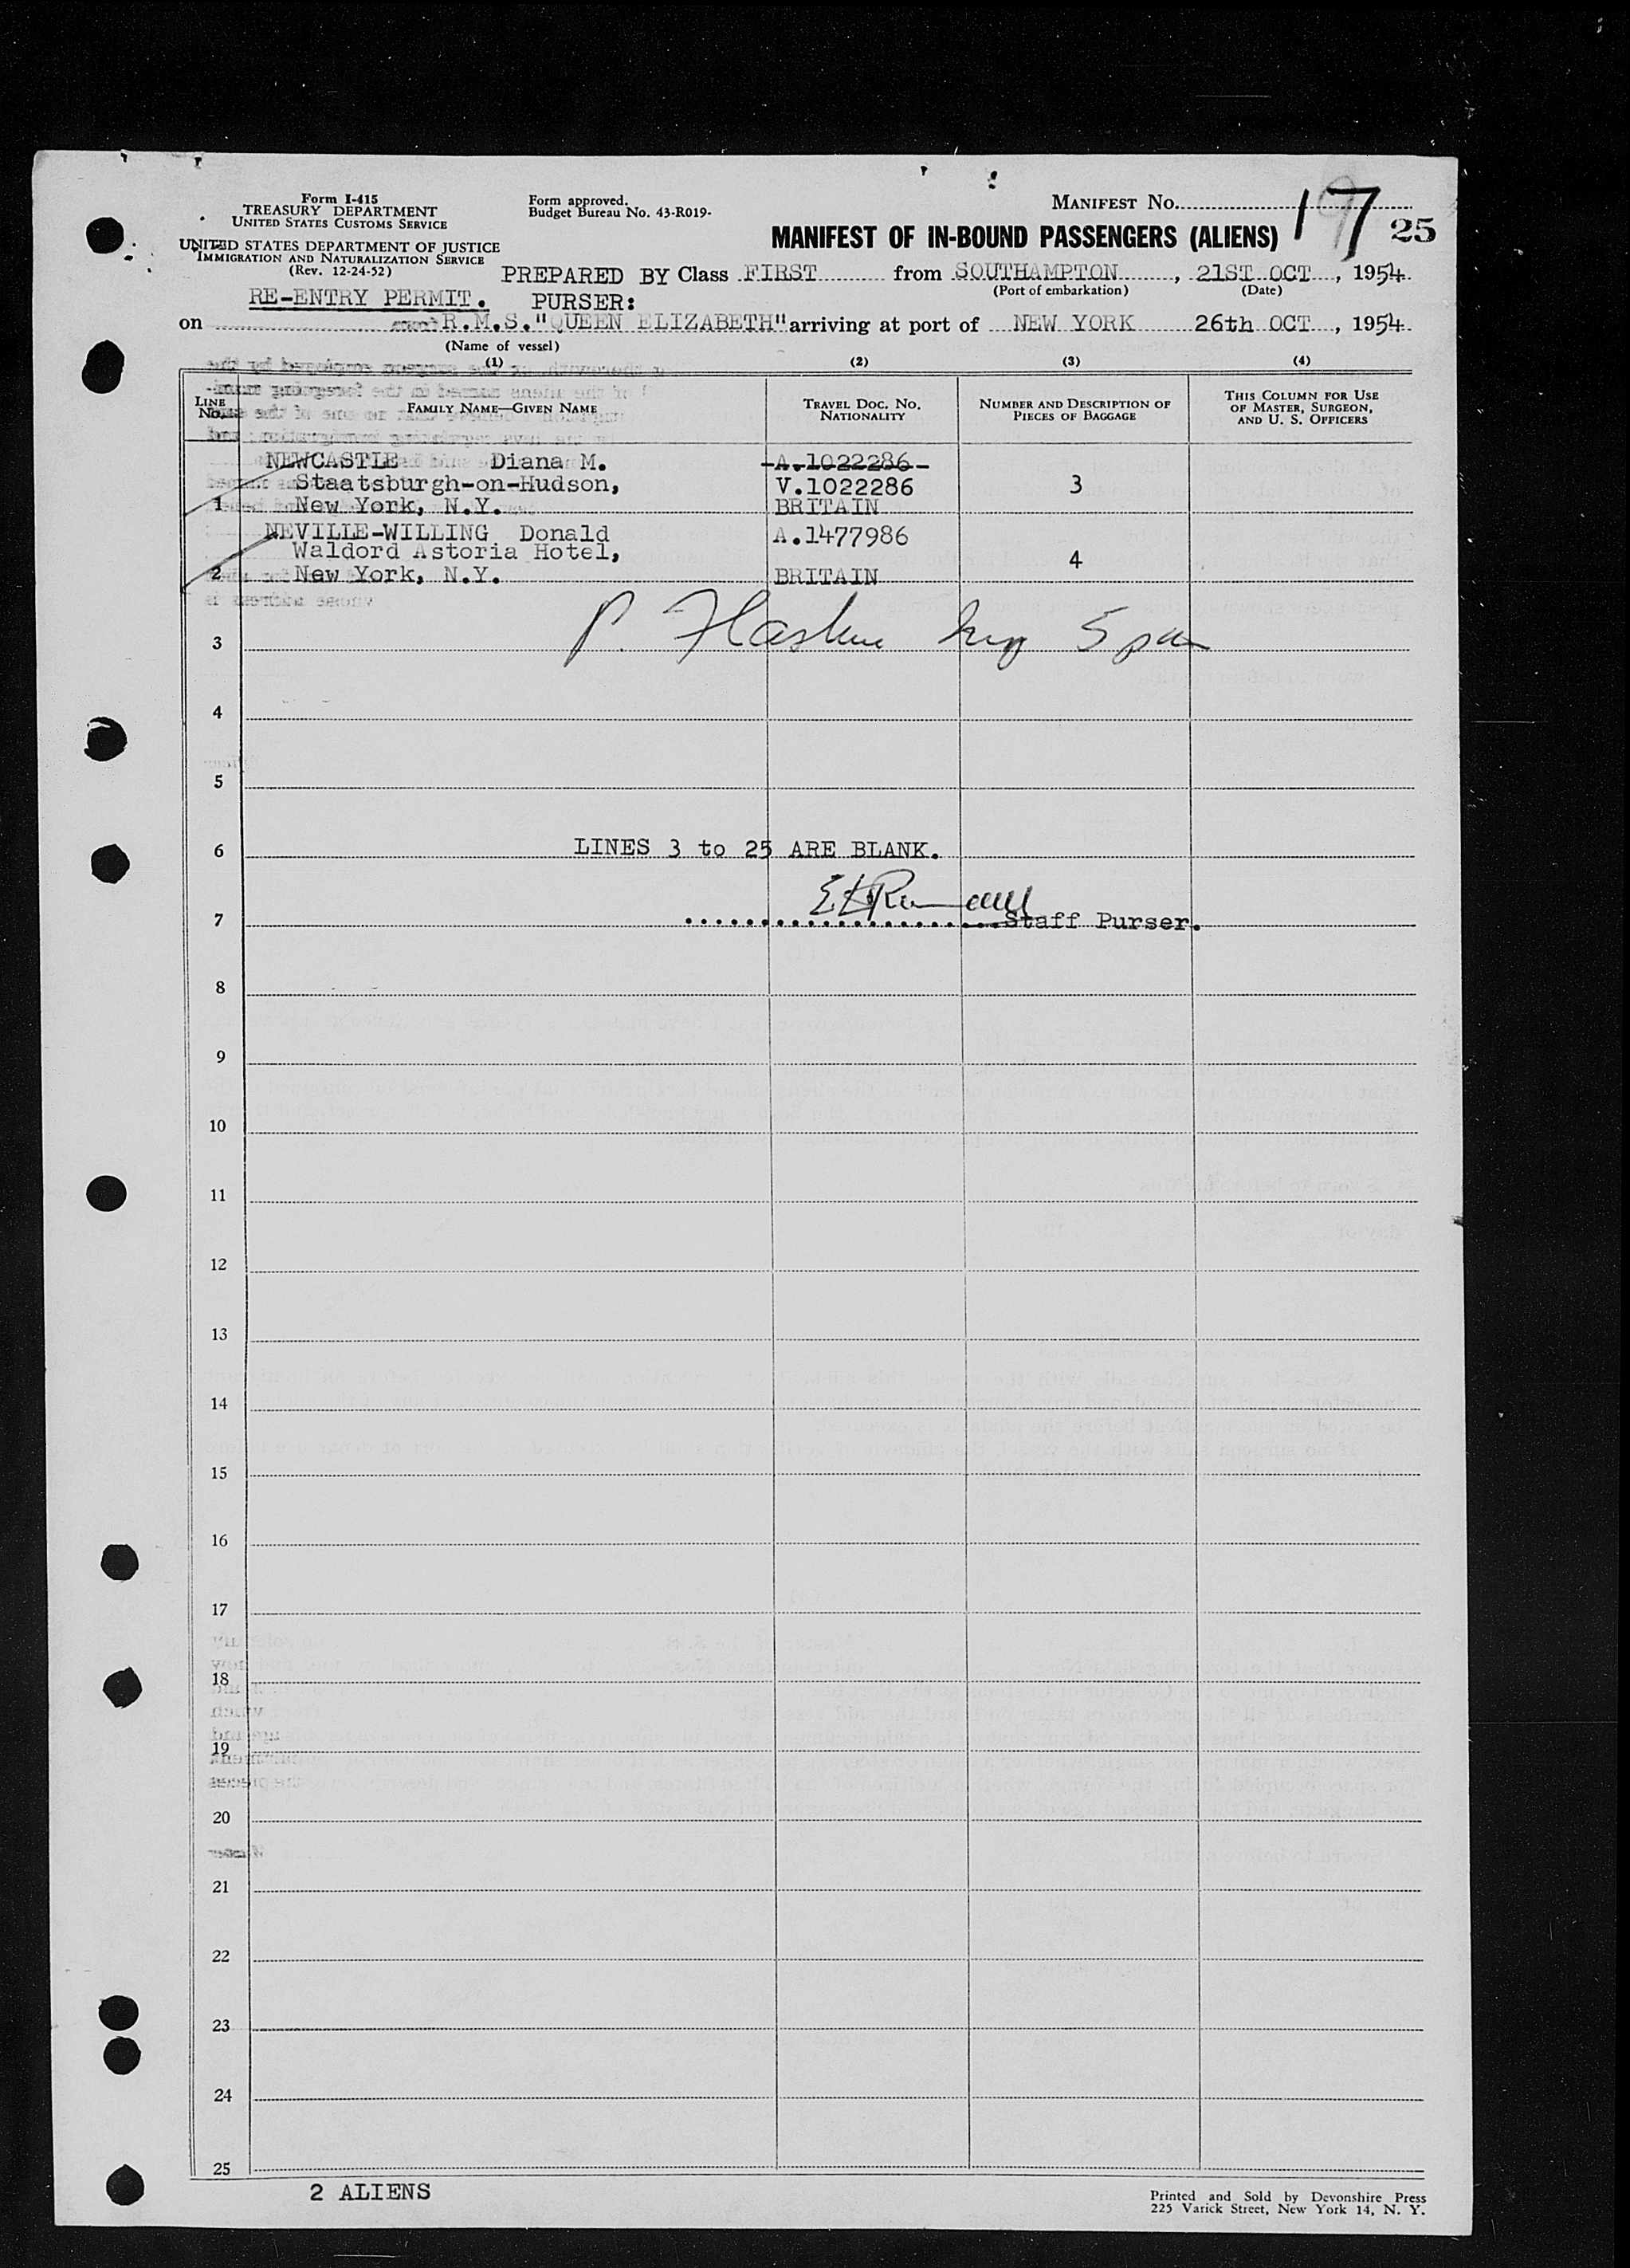 Form I-415
TREASURY DEPARTMENT
UNITED STATES CUSTOMS SERVICE
UNITED STATES DEPARTMENT OF JUSTICE
IMMIGRATION AND NATURALIZATION SERVICE
(Rev. 12-24-52)
Form approved.
Budget Bureau No. 43-R019-
MANIFEST NO. 17
25
MANIFEST OF IN-BOUND PASSENGERS (ALIENS)
PREPARED BY Class FIRST from SOUTHAMPTON, 21ST OCT, 1954
(Port of embarkation) (Date)
RE-ENTRY PERMIT. PURSER:
on R.M.S. "QUEEN ELIZABETH" arriving at port of NEW YORK 26th OCT, 1954
(Name of vessel)
(1) (2) (3) (4)
LINE No. FAMILY NAME—GIVEN NAME TRAVEL DOC. NO. NATIONALITY NUMBER AND DESCRIPTION OF PIECES OF BAGGAGE THIS COLUMN FOR USE OF MASTER, SURGEON, AND U. S. OFFICERS
NEWCASTLE Diana M. A.1022286
Staatsburgh-on-Hudson, V.1022286 3
1 New York, N.Y. BRITAIN
NEVILLE-WILLING Donald A.1477986
Waldord Astoria Hotel, 4
2 New York, N.Y. BRITAIN
3
4
5
6 LINES 3 to 25 ARE BLANK.
7 Staff Purser.
8
9
10
11
12
13
14
15
16
17
18
19
20
21
22
23
24
25
2 ALIENS
Printed and Sold by Devonshire Press
225 Varick Street, New York 14, N. Y.